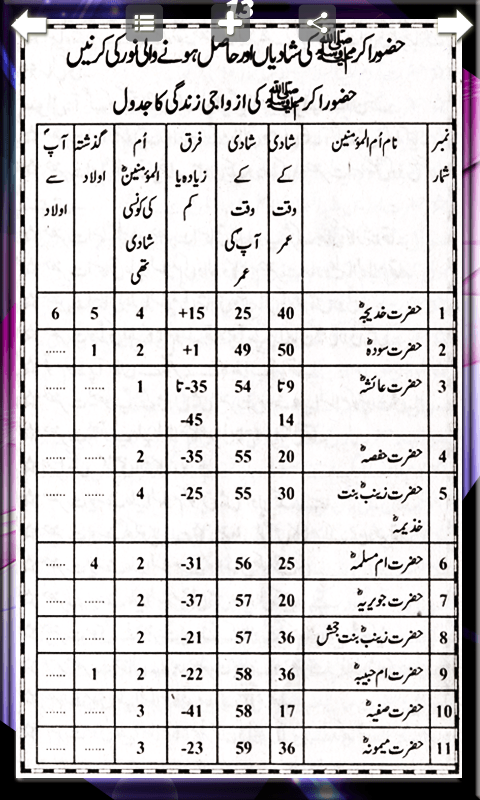 13
حضور اکرم ﷺ کی شادیاں اور حاصل ہونے والی نور کی کرنیں
حضور اکرم ﷺ کی ازواجی زندگی کا جدول
نمبر شمار | نام اُم المؤمنین | شادی کے وقت عمر | شادی کے وقت آپؐ کی عمر | فرق زیادہ یا کم | اُم المؤمنینؓ کی کونسی شادی تھی | گذشتہ اولاد | آپؐ سے اولاد
1 | حضرت خدیجہؓ | 40 | 25 | 15+ | 4 | 5 | 6
2 | حضرت سودہؓ | 50 | 49 | 1+ | 2 | 1 | ......
3 | حضرت عائشہؓ | 9 تا 14 | 54 | 35- تا 45- | 1 | ...... | ......
4 | حضرت حفصہؓ | 20 | 55 | 35- | 2 | ...... | ......
5 | حضرت زینبؓ بنت خذیمہؓ | 30 | 55 | 25- | 4 | ...... | ......
6 | حضرت ام مسلمہؓ | 25 | 56 | 31- | 2 | 4 | ......
7 | حضرت جویریہؓ | 20 | 57 | 37- | 2 | ...... | ......
8 | حضرت زینبؓ بنت جحش | 36 | 57 | 21- | 2 | ...... | ......
9 | حضرت ام حبیبہؓ | 36 | 58 | 22- | 2 | 1 | ......
10 | حضرت صفیہؓ | 17 | 58 | 41- | 3 | ...... | ......
11 | حضرت میمونہؓ | 36 | 59 | 23- | 3 | ...... | ......